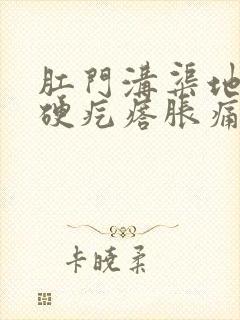 肛門溝渠地
硬疙瘩脹痛
卡曉柔